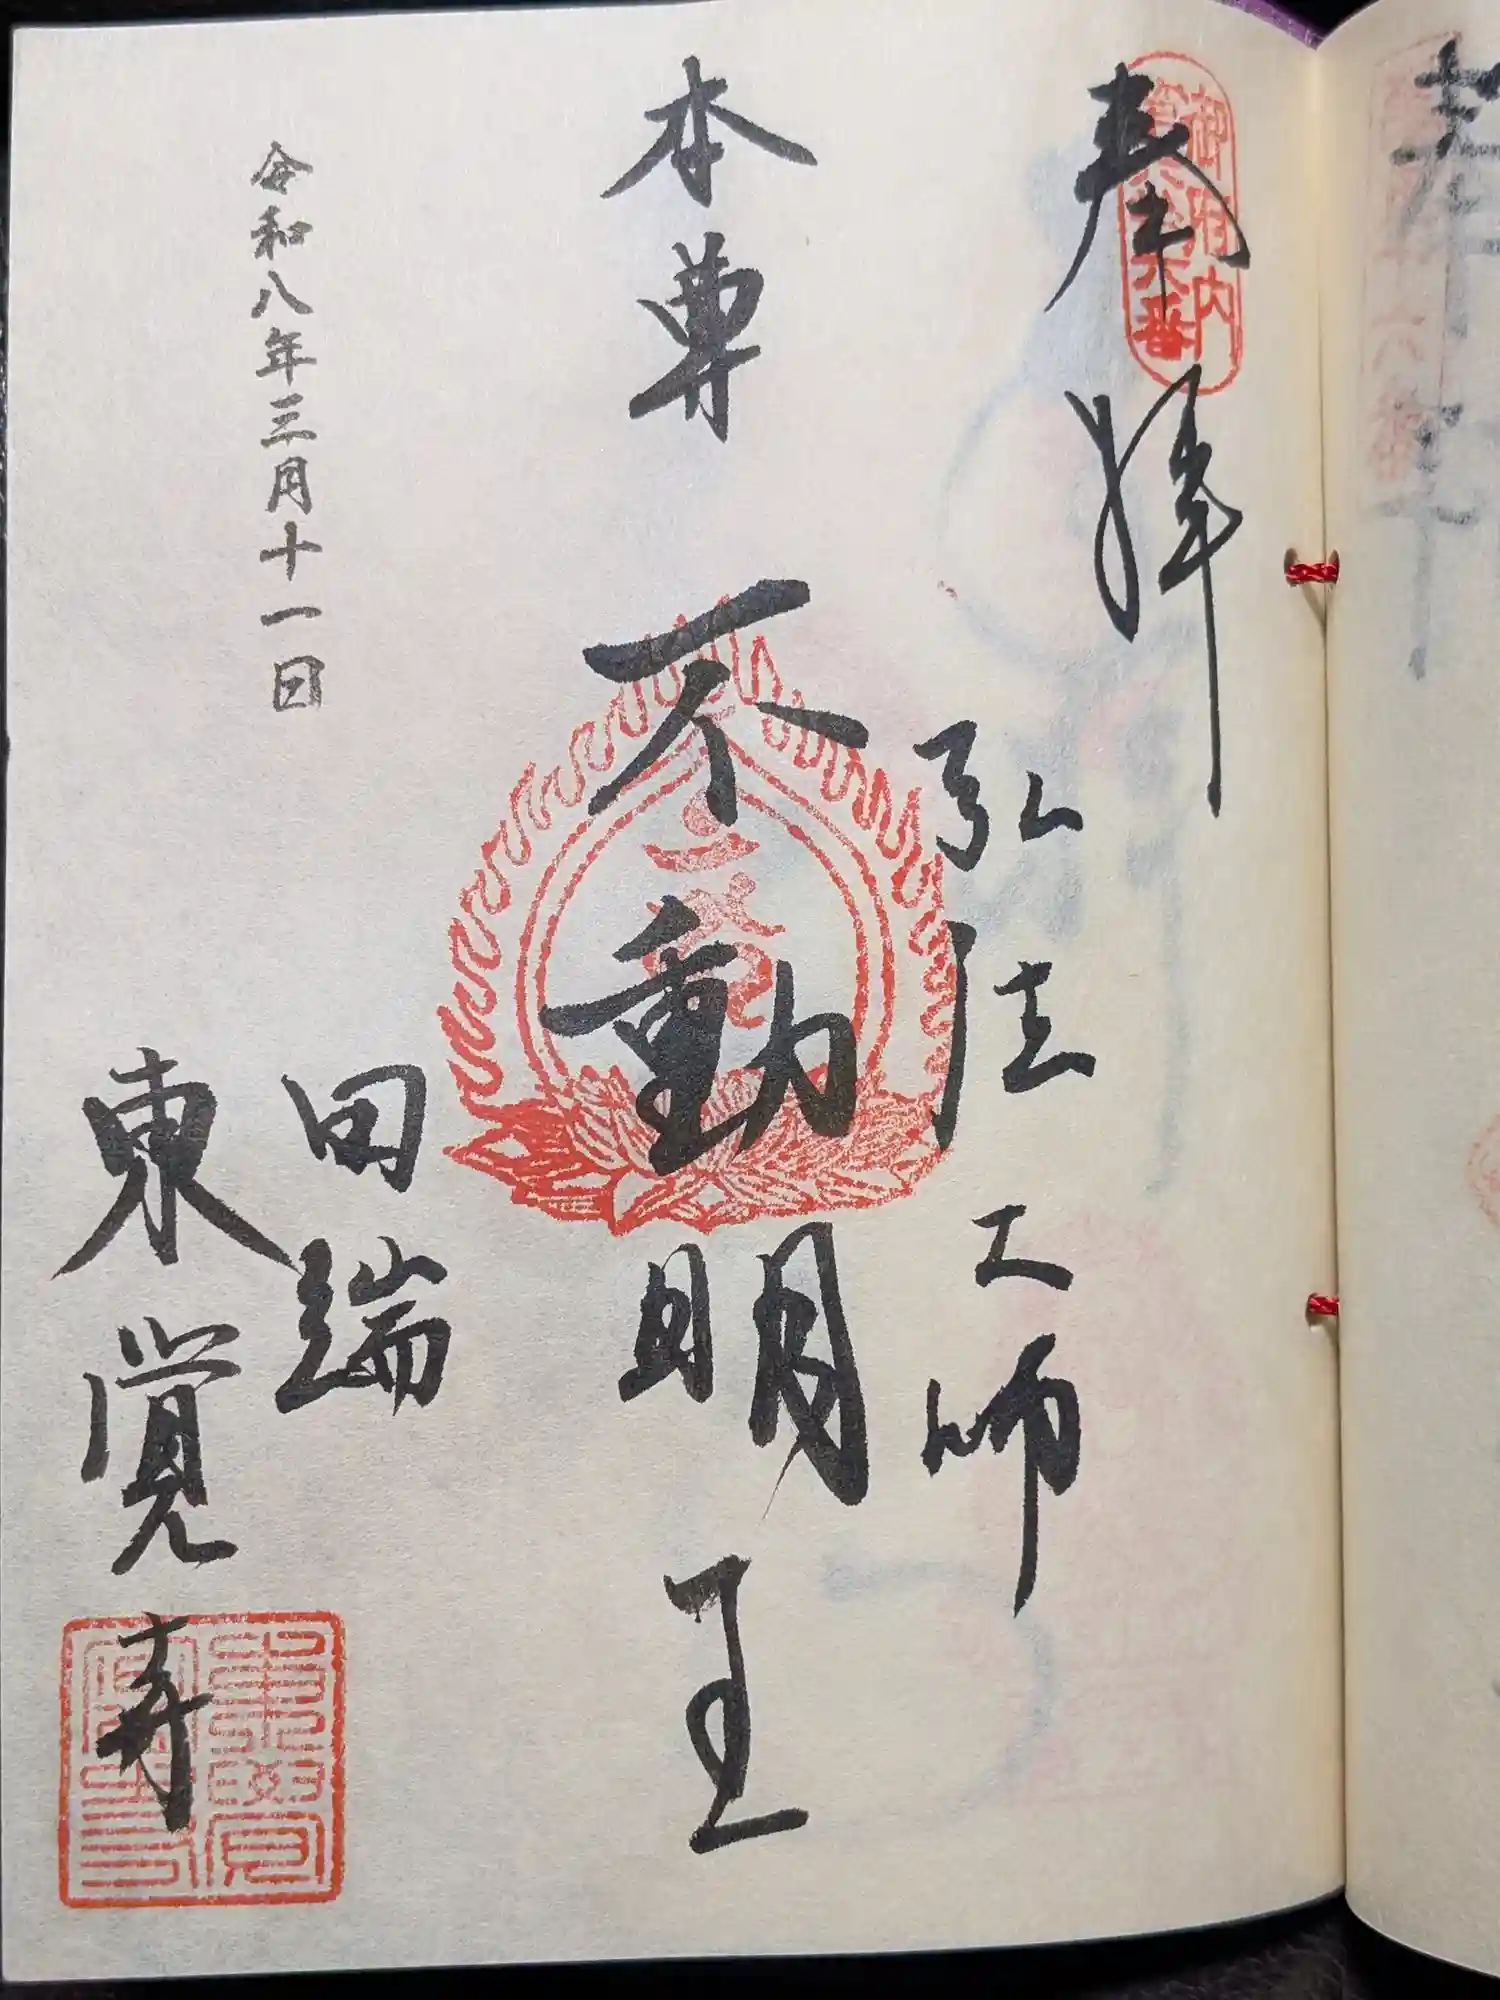 奉拝
御府内
六番
弘法大師
本尊 不動明王
令和八年三月十一日
田端
東覚寺